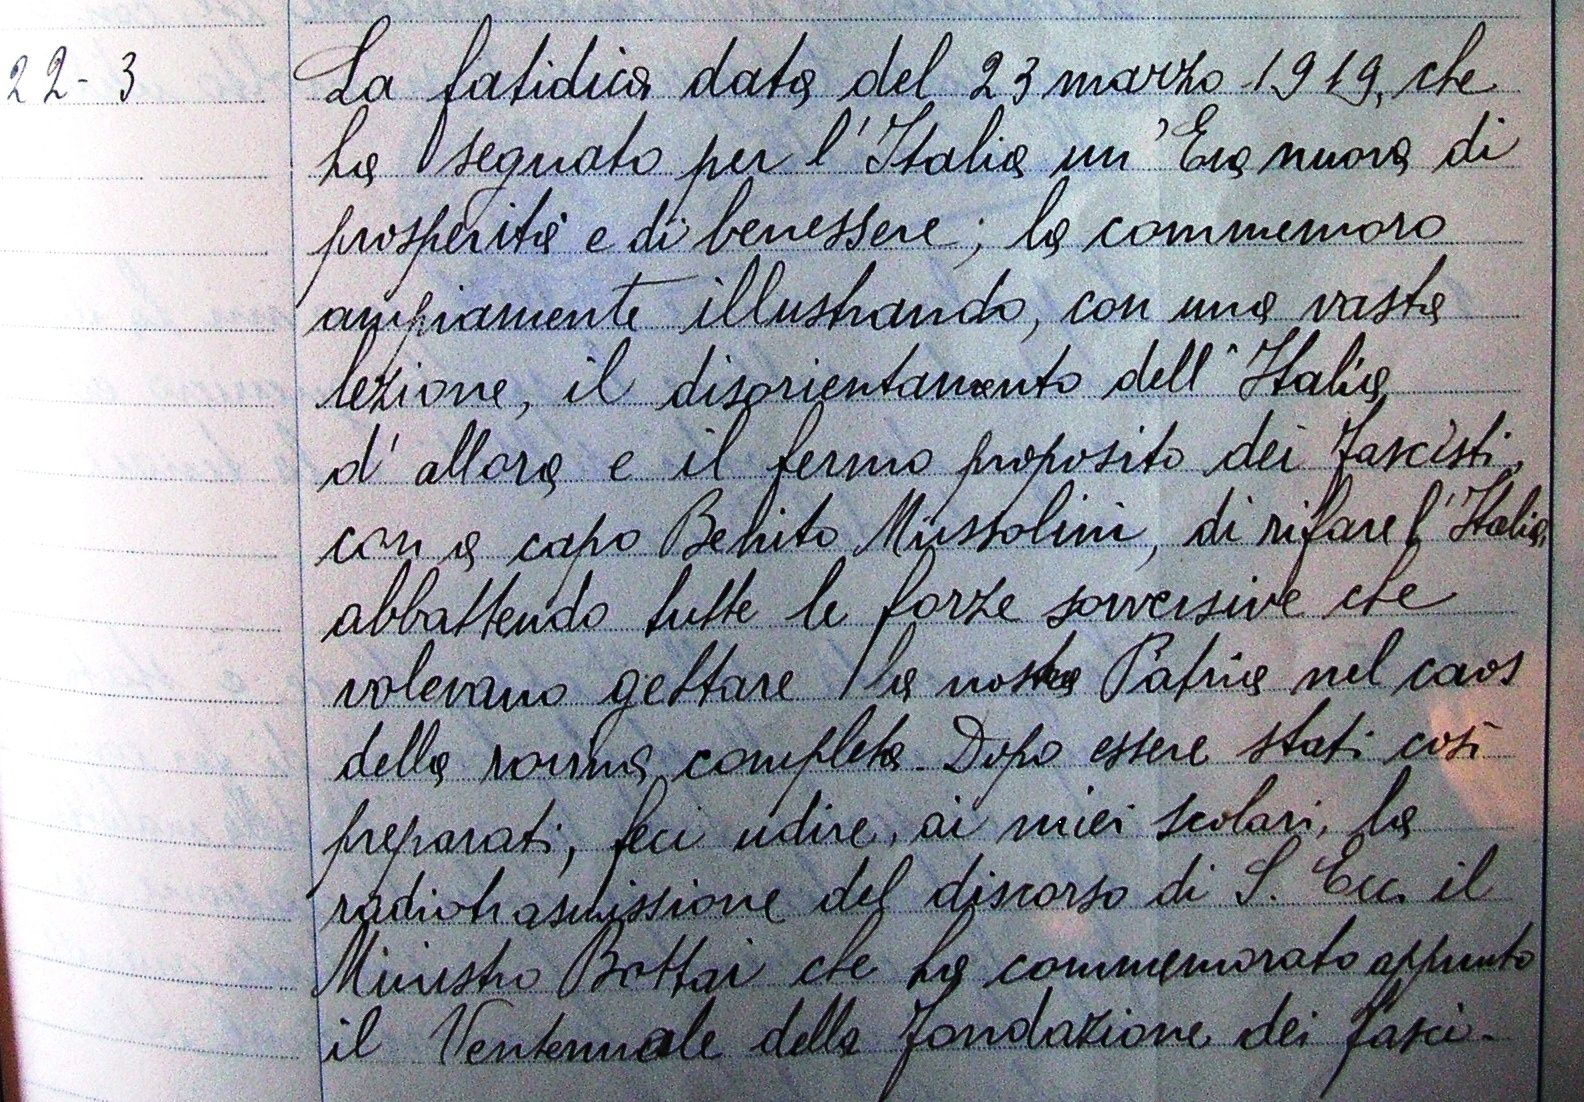 22-3 La fatidica data del 23 marzo 1919, che
ha segnato per l'Italia un'Era nuova di
prosperità e di benessere; la commemoro
ampiamente illustrando, con una vasta
lezione, il disorientamento dell'Italia
d'allora e il fermo proposito dei Fascisti,
con a capo Benito Mussolini, di rifare l'Italia,
abbattendo tutte le forze sovversive che
volevano gettare la nostra Patria nel caos
della rovina completa. Dopo essere stati così
preparati, feci udire, ai miei scolari, la
radiotrasmissione del discorso di S. Ecc. il
Ministro Bottai che ha commemorato appunto
il Ventennale della Fondazione dei Fasci.